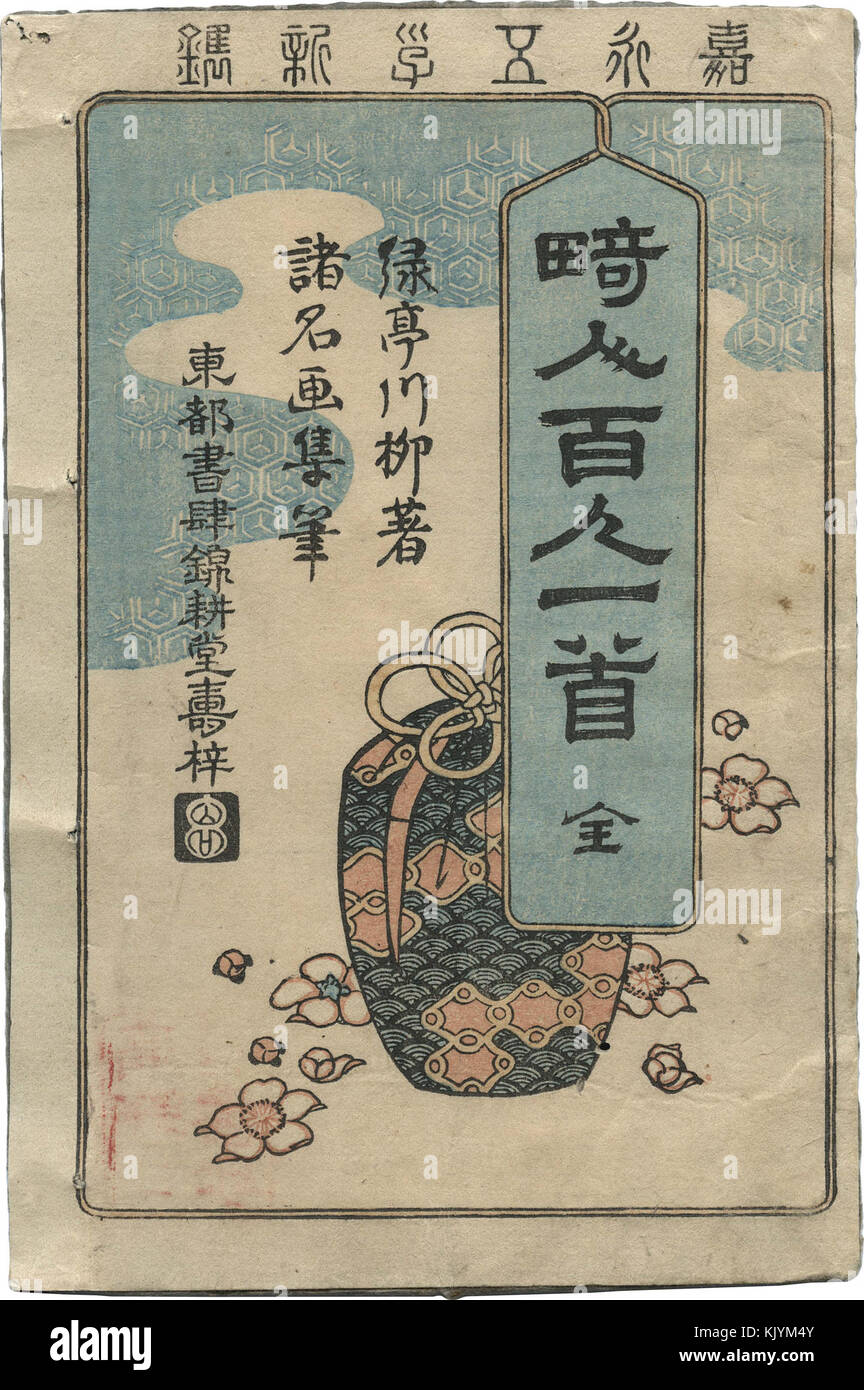 嘉永五年新鐫
畸人百人一首 全
緑亭川柳著
諸名画集筆
東都書肆錦耕堂壽梓
alamy
Image ID: KJYM4Y
www.alamy.com